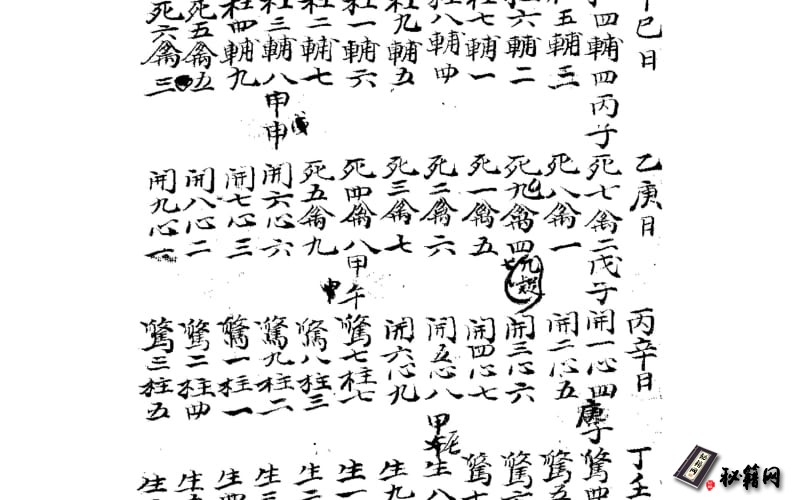 巳日
四輔四丙子
五輔三
六輔二
七輔一
八輔四
九輔五
柱一輔六
柱二輔七
柱三輔八甲申
柱四輔九
死五禽五
死六禽三
乙庚日
死七禽二戊子
死八禽一
死九禽四
死一禽五
死二禽六
死三禽七
死四禽八甲午
死五禽九
開六心六
開七心三
開八心二
開九心一
丙辛日
開一心四庚子
開二心五
開三心六
開四心七
開五心八甲
開六心九
驚七柱七
驚八柱三
驚九柱二
驚一柱一
驚二柱四
驚三柱五
丁壬
驚四
驚五
驚
驚
生八
生九
生一
生二
生三
生四
生
生
秘籍网